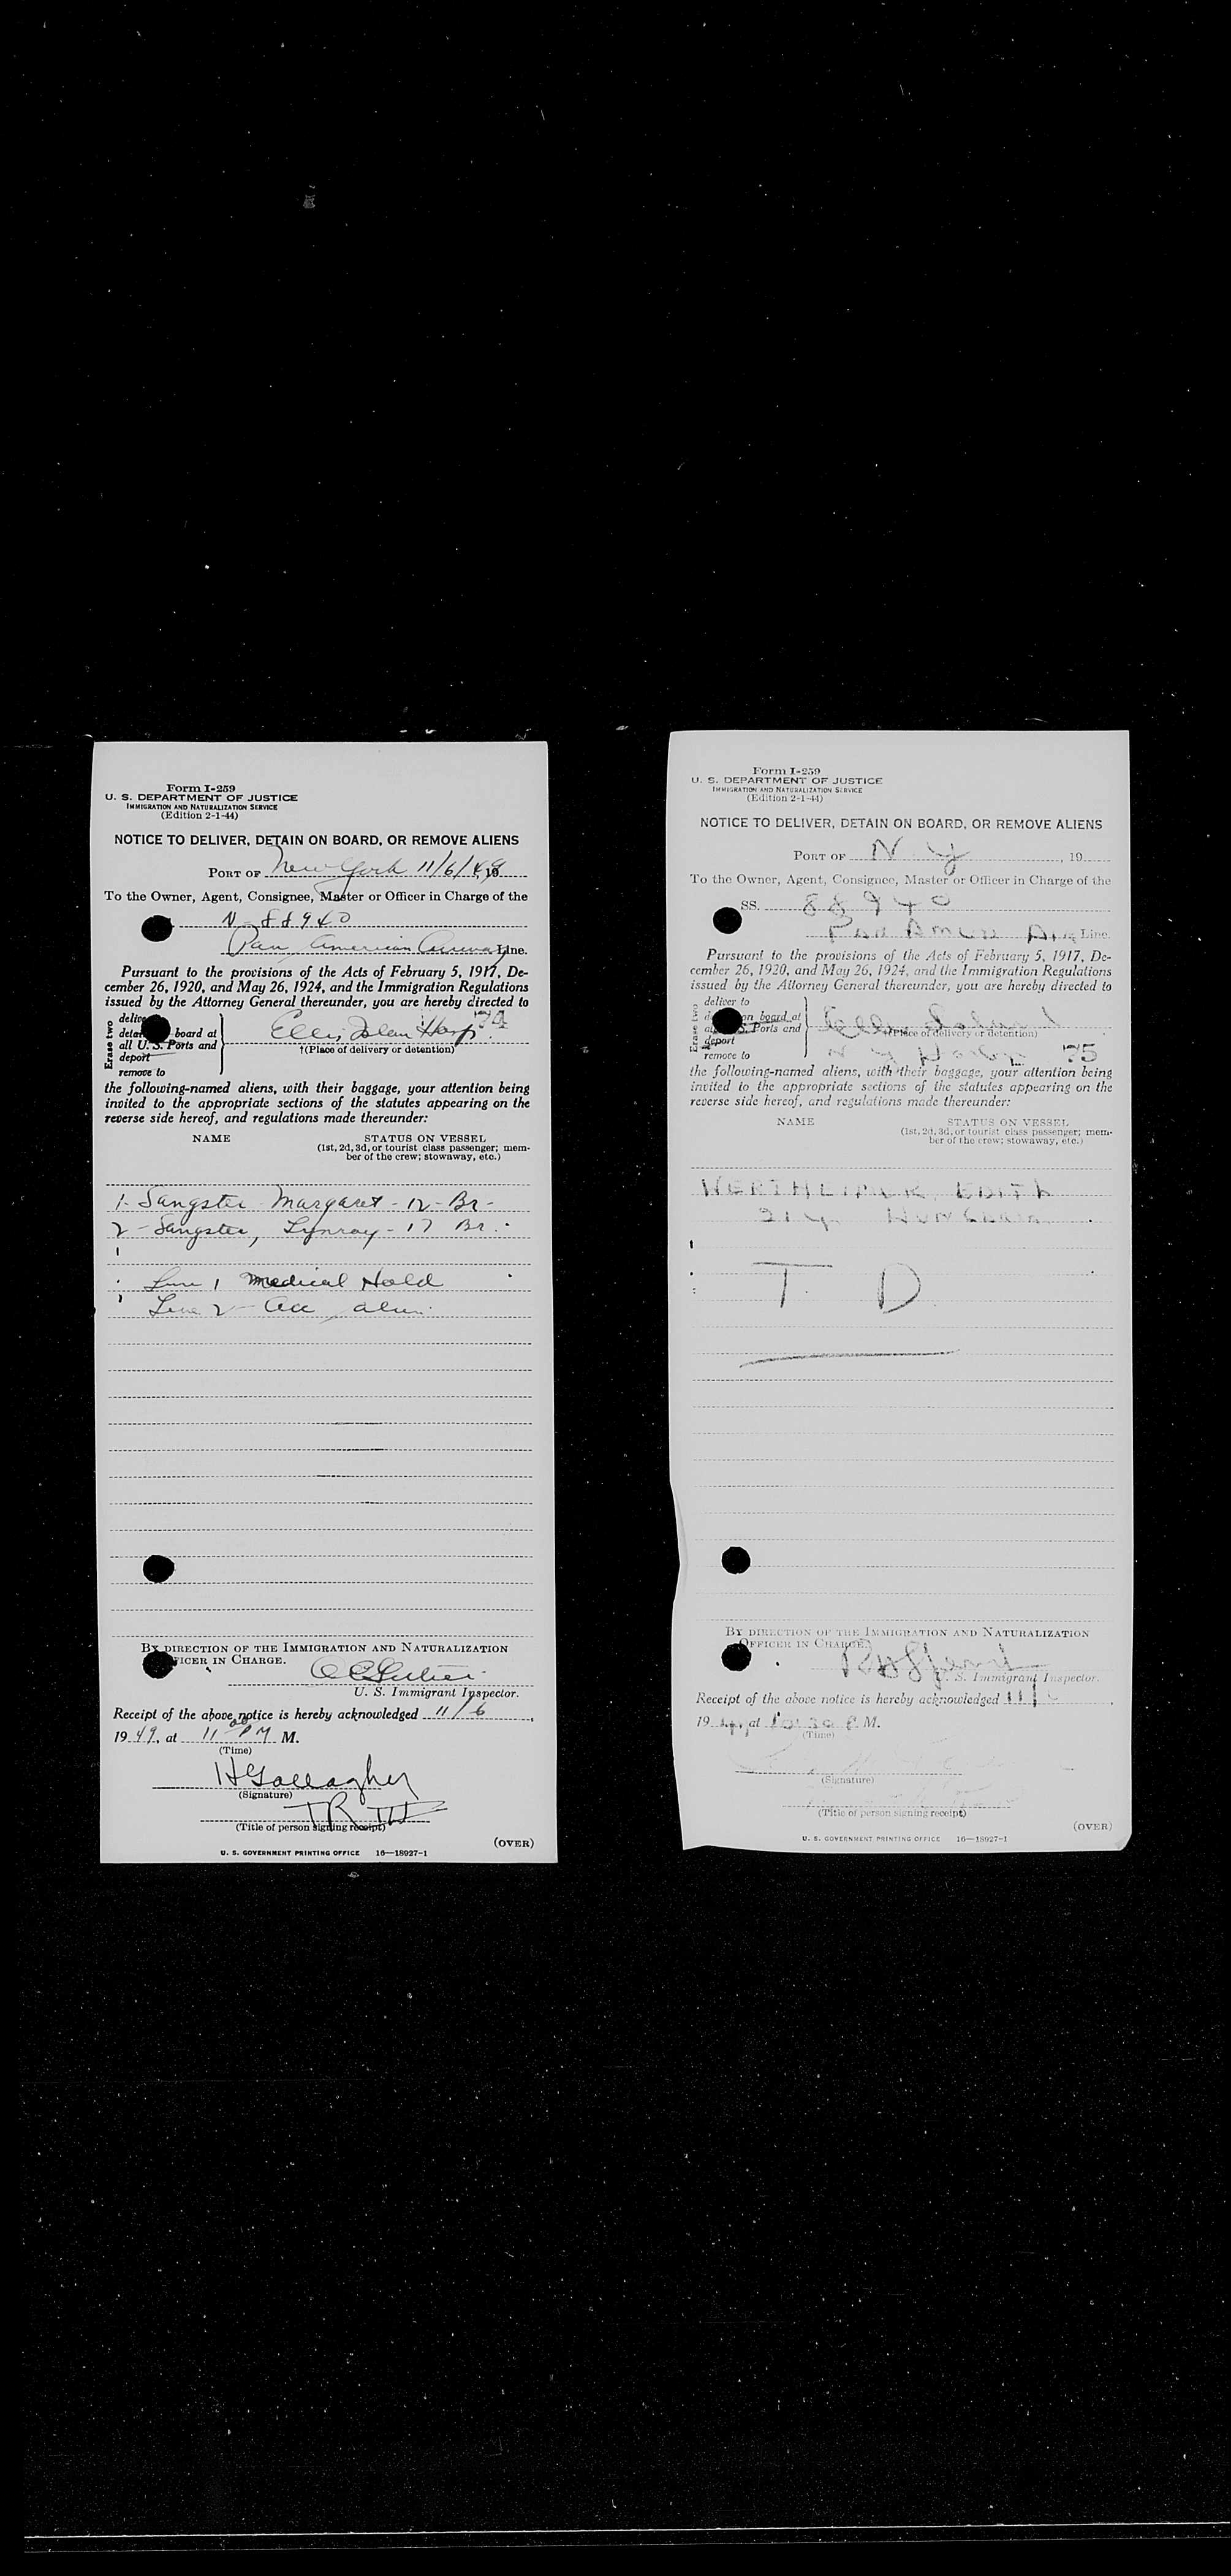 Form I-259
U. S. DEPARTMENT OF JUSTICE
IMMIGRATION AND NATURALIZATION SERVICE
(Edition 2-1-44)
NOTICE TO DELIVER, DETAIN ON BOARD, OR REMOVE ALIENS
PORT OF New York 11/6/49, 19
To the Owner, Agent, Consignee, Master or Officer in Charge of the
N-88940
Pan American Line.
Pursuant to the provisions of the Acts of February 5, 1917, De-
cember 26, 1920, and May 26, 1924, and the Immigration Regulations
issued by the Attorney General thereunder, you are hereby directed to
Erase two
board at
all U. S. Ports and
deport
remove to
Ellis Hosp. 74
†(Place of delivery or detention)
the following-named aliens, with their baggage, your attention being
invited to the appropriate sections of the statutes appearing on the
reverse side hereof, and regulations made thereunder:
NAME STATUS ON VESSEL
(1st, 2d, 3d, or tourist class passenger; mem-
ber of the crew; stowaway, etc.)
1- Sangster Margaret - 12 - Br -
2 - Sangster, Lynray - 17 Br.
Line 1 Medical Hold
Line 2 - Acc alien
BY DIRECTION OF THE IMMIGRATION AND NATURALIZATION
OFFICER IN CHARGE.
U. S. Immigrant Inspector.
Receipt of the above notice is hereby acknowledged 11/6,
19 49, at 11 00 PM M.
(Time)
H Gallagher
(Signature)
(Title of person signing receipt)
(OVER)
U. S. GOVERNMENT PRINTING OFFICE 16—18927-1
Form I-259
U. S. DEPARTMENT OF JUSTICE
IMMIGRATION AND NATURALIZATION SERVICE
(Edition 2-1-44)
NOTICE TO DELIVER, DETAIN ON BOARD, OR REMOVE ALIENS
PORT OF N. Y, 19
To the Owner, Agent, Consignee, Master or Officer in Charge of the
SS. 88940
Pan Amer Line.
Pursuant to the provisions of the Acts of February 5, 1917, De-
cember 26, 1920, and May 26, 1924, and the Immigration Regulations
issued by the Attorney General thereunder, you are hereby directed to
Erase two
deliver to
on board at
Ports and
deport
remove to
Ellis Island
†(Place of delivery or detention)
N Y 75
the following-named aliens, with their baggage, your attention being
invited to the appropriate sections of the statutes appearing on the
reverse side hereof, and regulations made thereunder:
NAME STATUS ON VESSEL
(1st, 2d, 3d, or tourist class passenger; mem-
ber of the crew; stowaway, etc.)
EDITH
21 y. HUNGARIAN
T. D
BY DIRECTION OF THE IMMIGRATION AND NATURALIZATION
OFFICER IN CHARGE.
U. S. Immigrant Inspector.
Receipt of the above notice is hereby acknowledged 11/6,
19 49, at 10 30 P M.
(Time)
(Signature)
(Title of person signing receipt)
(OVER)
U. S. GOVERNMENT PRINTING OFFICE 16—18927-1